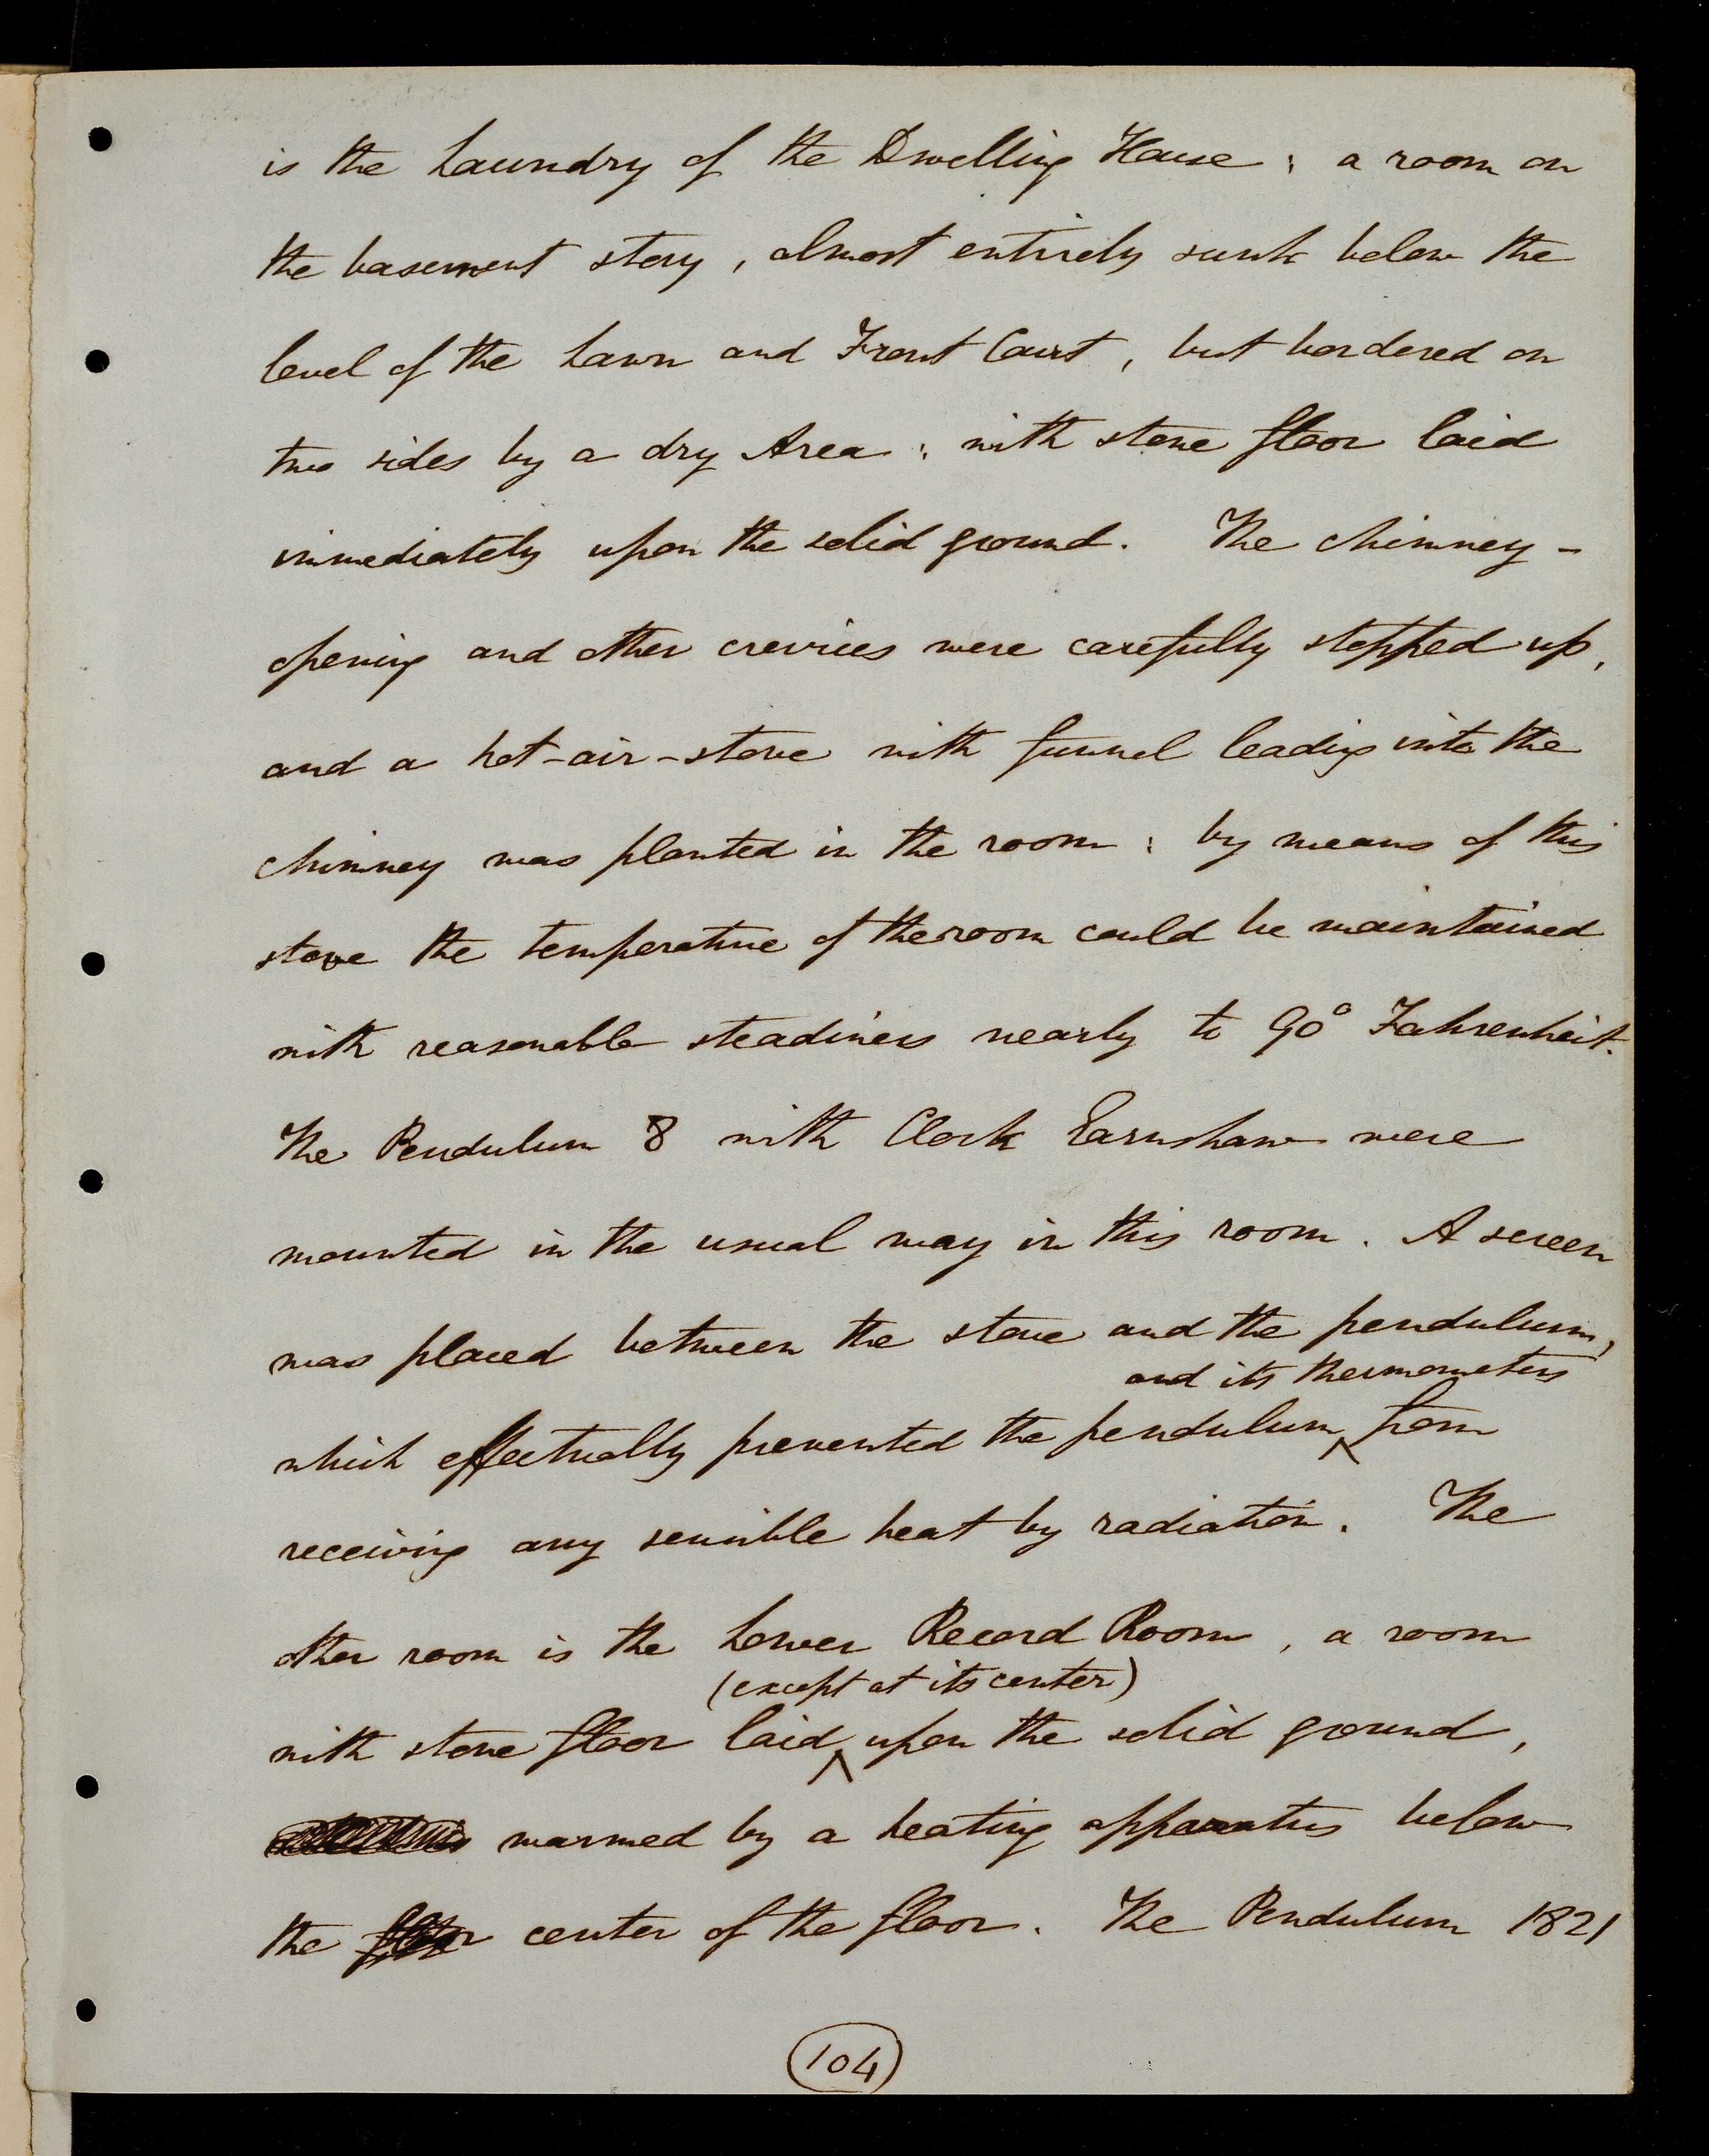 is the Laundry of the Dwelling House; a room on
the basement story, almost entirely sunk below the
level of the Lawn and Front Court, but bordered on
two sides by a dry Area; with stone floor laid
immediately upon the solid ground. The chimney-
opening and other crevices were carefully stopped up,
and a hot-air-stove with funnel leading into the
chimney was planted in the room; by means of this
stove the temperature of the room could be maintained
with reasonable steadiness nearly to 90° Fahrenheit.
The Pendulum 8 with Clock Earnshaw were
mounted in the usual way in this room. A screen
was placed between the stove and the pendulum,
and its thermometers
which effectually prevented the pendulum ^ from
receiving any sensible heat by radiation. The
other room is the Lower Record Room, a room
(except at its center)
with stone floor laid ^ upon the solid ground,
warmed by a heating apparatus below
the floor center of the floor. The Pendulum 1821
104